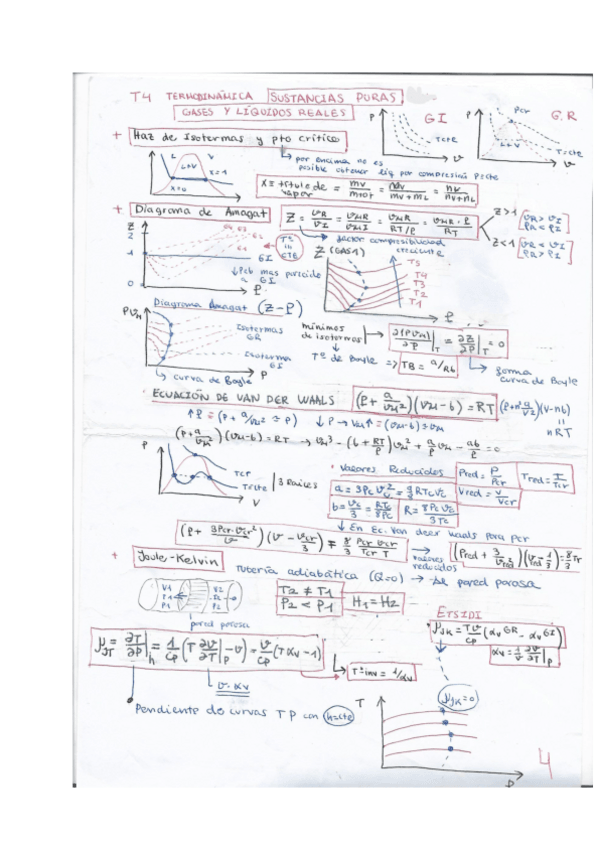 T4 TERMODINÁMICA SUSTANCIAS PURAS
GASES Y LÍQUIDOS REALES
P GI Tcte v
P Pcr G.R L+V T=cte v
+ Haz de Isotermas y pto crítico
por encima no es
posible obtener liq por compresión Pcte
L V L+V X=0 X=1
X = título de vapor = mv/mtot = mv/(mv+mL) = nv/(nv+nL)
+ Diagrama de Amagat
Z = vR/vI = vMR/vMI = vMR/(RT/P) = vMR·P/RT
Z>1 [vR > vI
ρR < ρI]
Z<1 [vR < vI
ρR > ρI]
factor compresibilidad
Z 2 1 0 GI P
Tª = CTE
↓Pcb más parecido
a GI
Z (GAS 1) creciente
T5
T4
T3
T2
T1
P
Diagrama Amagat (Z-P)
PVM
Isotermas
GR
Isoterma
GI
P
↳ curva de Boyle
mínimos
de isotermas
∂(PVM)/∂P|T = ∂Z/∂P|T = 0
Tª de Boyle => TB = a/Rb
forma
curva de Boyle
ECUACIÓN DE VAN DER WAALS (P + a/vM²)(vM - b) = RT (P+n²a/V²)(V-nb) = nRT
↑P = (P + a/vM² ≃ P) ↓P → vM↑ = (vM-b) ≃ vM
(P + a/vM²)(vM-b) = RT → vM³ - (b + RT/P)vM² + a/P vM - ab/P = 0
P TCP T<Tcte V
3 Raíces
· Valores Reducidos Pred = P/Pcr Tred = T/Tcr
Vred = v/vcr
a = 3Pc vc² = 9/8 RTc vc
b = vc/3 = RTc/8Pc R = 8Pc vc/3Tc
↓ En Ec. Van deer waals para Pcr
(P + 3Pcr·vcr²/v²)(v - vcr/3) = 8/3 Pcr vcr/Tcr T → valores reducidos (Pred + 3/vred²)(vred - 1/3) = 8/3 Tr
+ Joule-Kelvin
Tubería adiabática (Q=0) → pared porosa
V1 T1 P1 V2 T2 P2
pared porosa
T2 ≠ T1
P2 < P1
H1 = H2
ETSIDI
μJK = Tv/cp (αv GR - αv GI)
αv = 1/v ∂v/∂T|p
μJT = ∂T/∂P|h = 1/cp (T ∂v/∂T|p - v) = v/cp (Tαv - 1)
v·αv
Tªinv = 1/αv
Pendiente de curvas TP con h=cte
T μJK=0 P
4